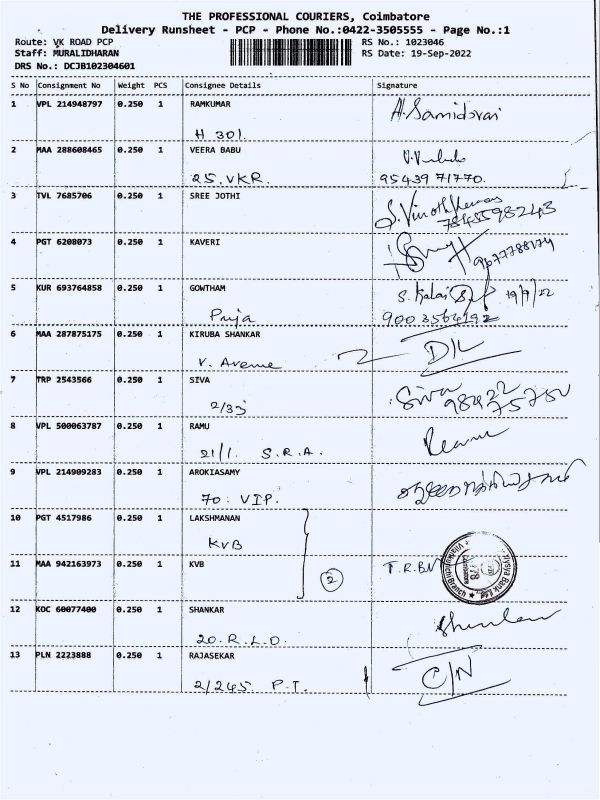 THE PROFESSIONAL COURIERS, Coimbatore
Delivery Runsheet - PCP - Phone No.:0422-3505555 - Page No.:1
Route: VK ROAD PCP RS No.: 1023046
Staff: MURALIDHARAN RS Date: 19-Sep-2022
DRS No.: DCJB102304601
S No Consignment No Weight PCS Consignee Details Signature
1 VPL 214948797 0.250 1 RAMKUMAR A. Samidorai
H 301.
2 MAA 288608465 0.250 1 VEERA BABU
25. VKR. 95439 71770.
3 TVL 7685706 0.250 1 SREE JOTHI S. Vinothkumar
4 PGT 6208073 0.250 1 KAVERI 9677788174
5 KUR 693764858 0.250 1 GOWTHAM S. Kalai 19/9/22
Puja 9003564192
6 MAA 287875175 0.250 1 KIRUBA SHANKAR D/L
V. Avenue
7 TRP 2543566 0.250 1 SIVA Siva 98422
2/33 75750
8 VPL 500063787 0.250 1 RAMU
21/1. S.R.A.
9 VPL 214909283 0.250 1 AROKIASAMY
70. VIP.
10 PGT 4517986 0.250 1 LAKSHMANAN
KVB
11 MAA 942163973 0.250 1 KVB T.R.B.N
2
12 KOC 60077400 0.250 1 SHANKAR
20. R.L.D.
13 PLN 2223888 0.250 1 RAJASEKAR C/N
2/245 P.T.